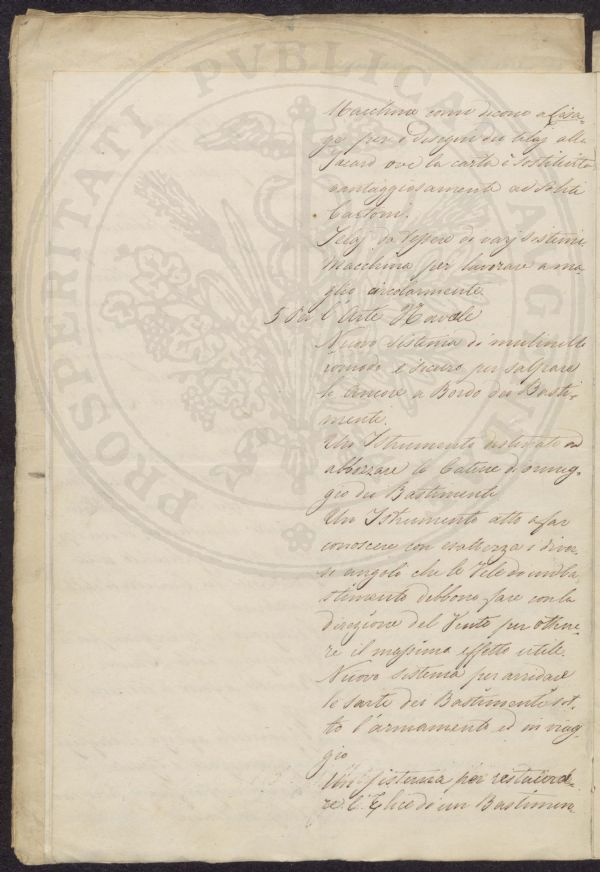 PROSPERITATI PUBLICAE AUGENDAE
Macchina come dicono a Lisa-
ge per i disegni dei telaj alla
Jacard ove la carta è sostituita
vantaggiosamente ai soliti
Cartoni.
Telaj da tessere di varj sistemi
Macchina per lavorare a ma-
glia circolarmente
5 Per l'Arte Navale
Nuovo sistema di mulinello
comodo e sicuro per salpare
le Ancore a Bordo dei Basti-
menti.
Un Istrumento ad
abbozzare le Catene d'ormeg-
gio dei Bastimenti
Un Istrumento atto a far
conoscere con esattezza i diver-
si angoli che le Vele di un Ba-
stimento debbono fare con la
direzione del Vento per ottene-
re il massimo effetto utile.
Nuovo sistema per arridare
le sarte dei Bastimenti sot-
to l'armamento ed in viag-
gio
Un sistema per
re l'Elice di un Bastimen